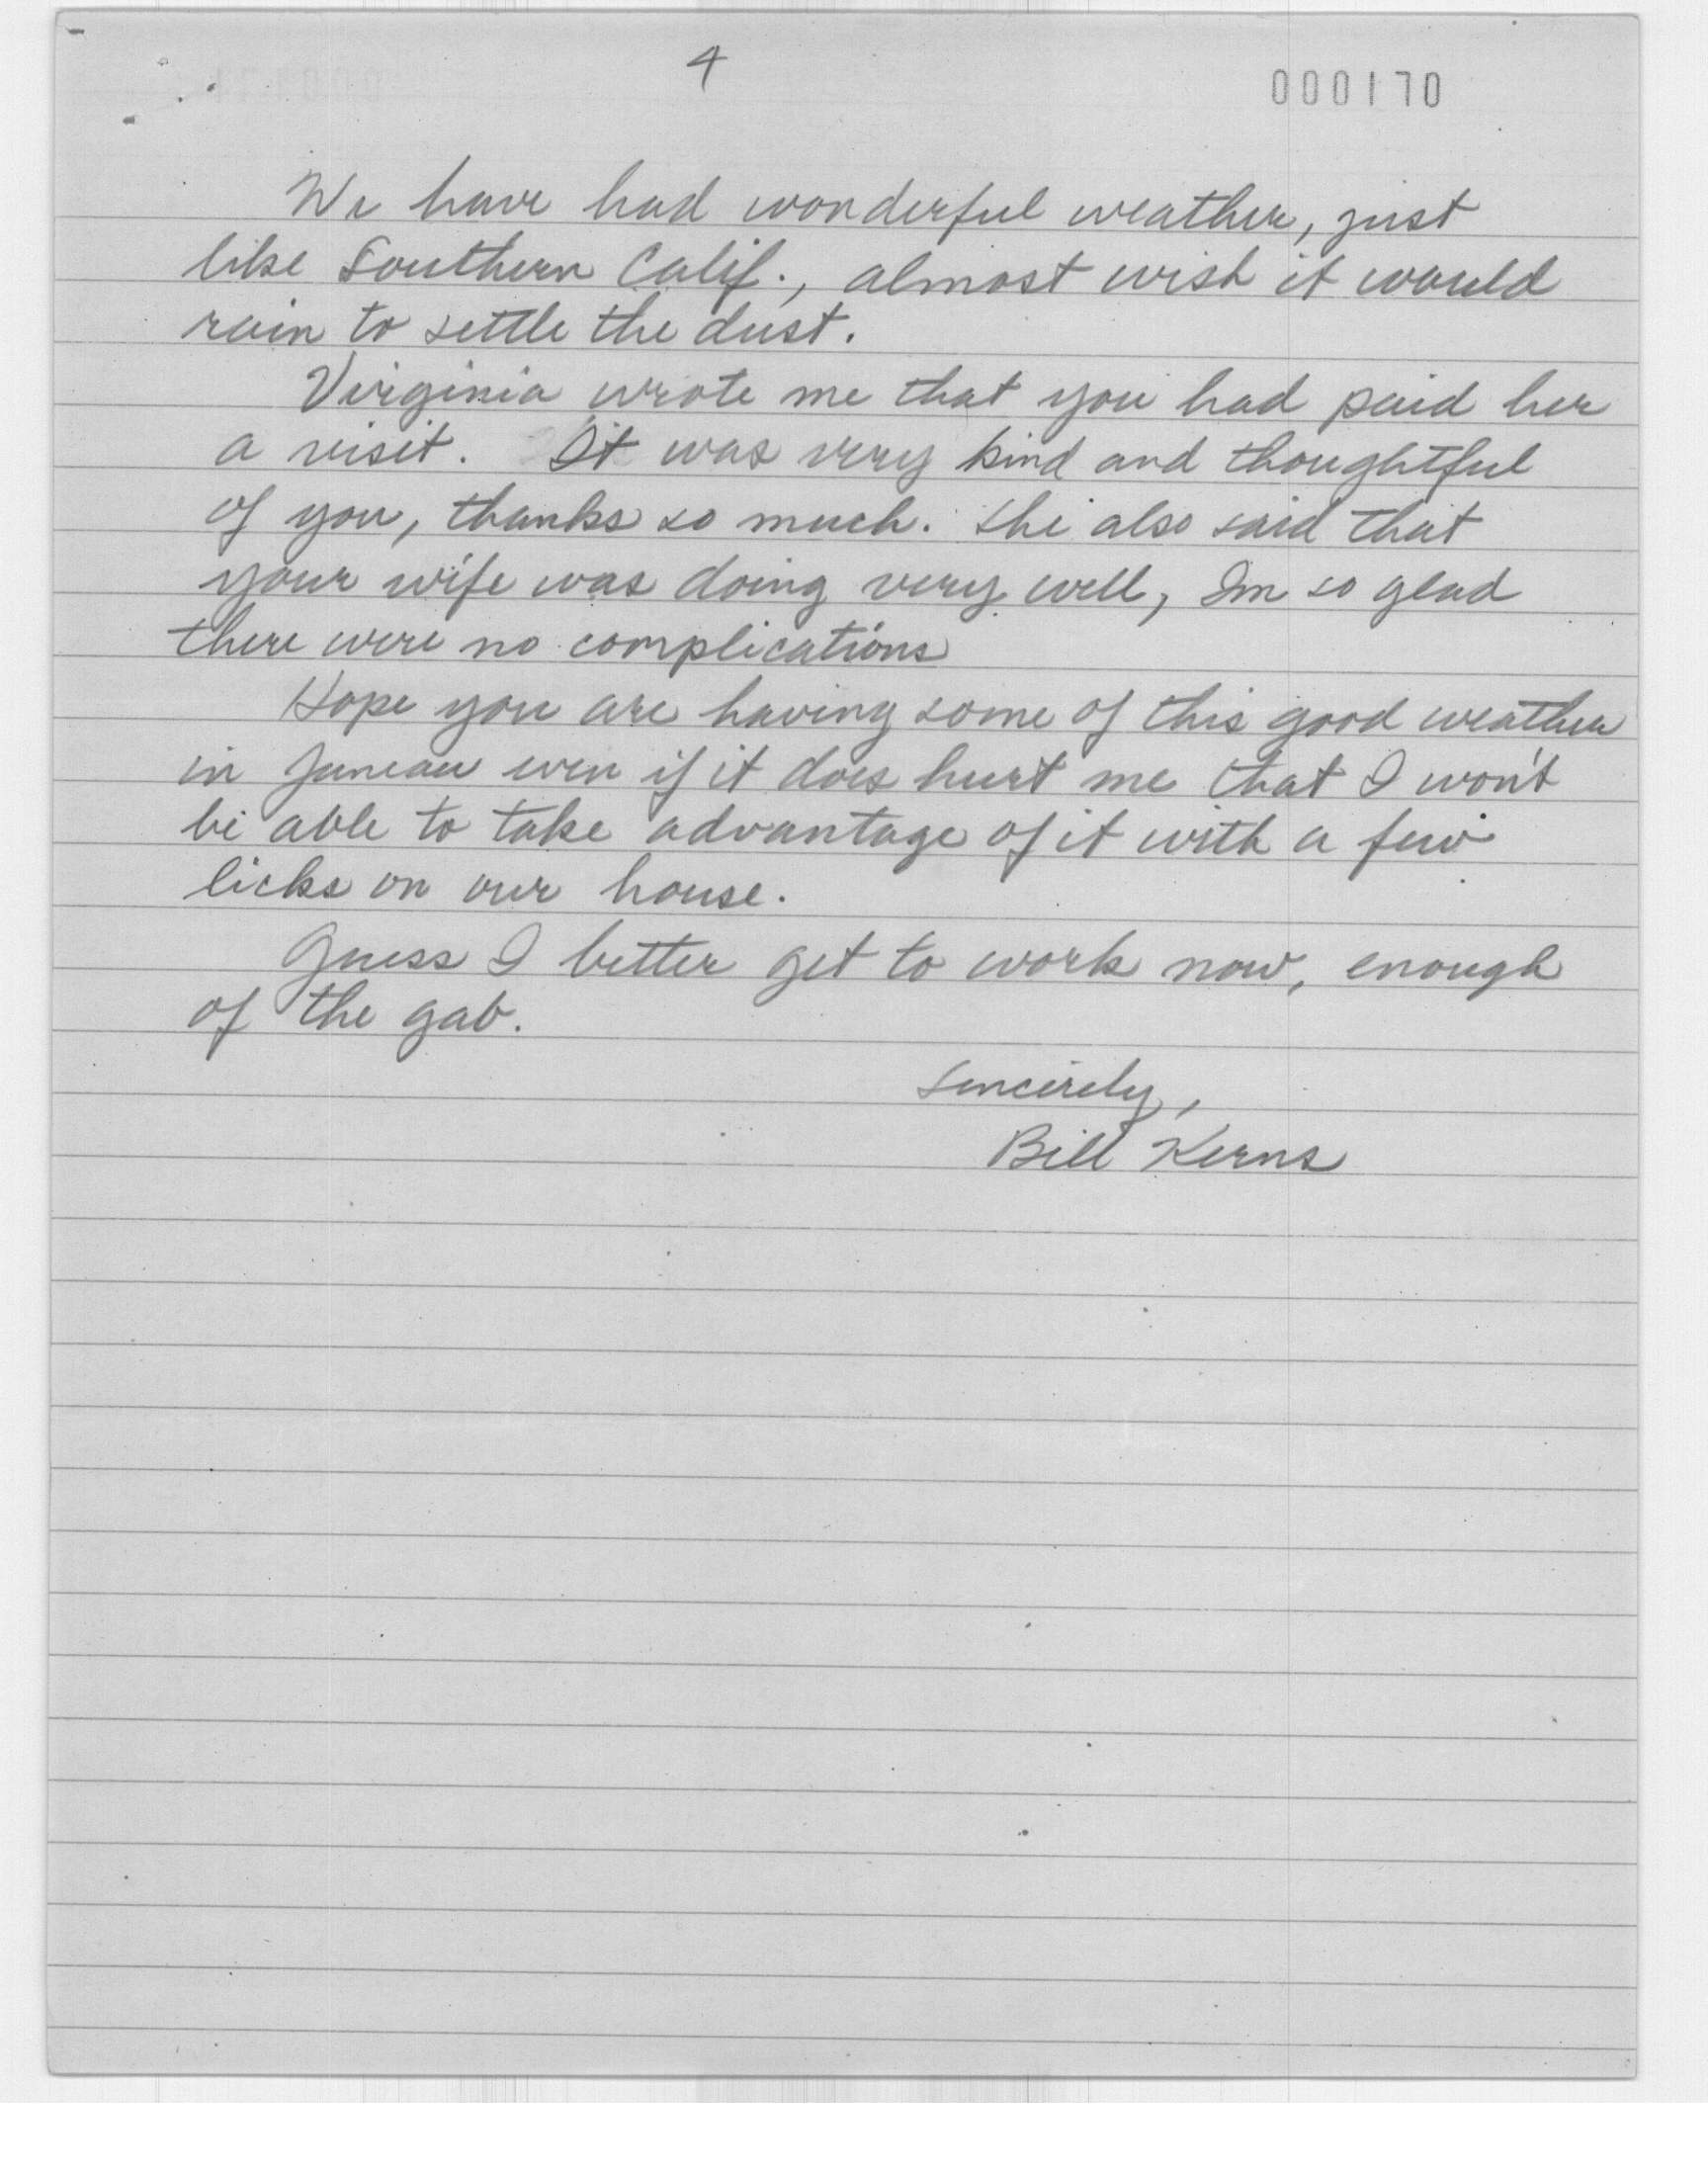 4
000170
We have had wonderful weather, just
like Southern Calif., almost wish it would
rain to settle the dust.
Virginia wrote me that you had paid her
a visit. It was very kind and thoughtful
of you, thanks so much. She also said that
your wife was doing very well, Im so glad
there were no complications
Hope you are having some of this good weather
in Juneau even if it does hurt me that I won't
be able to take advantage of it with a few
licks on our house.
Guess I better get to work now, enough
of the gab.
Sincerely,
Bill Kerns